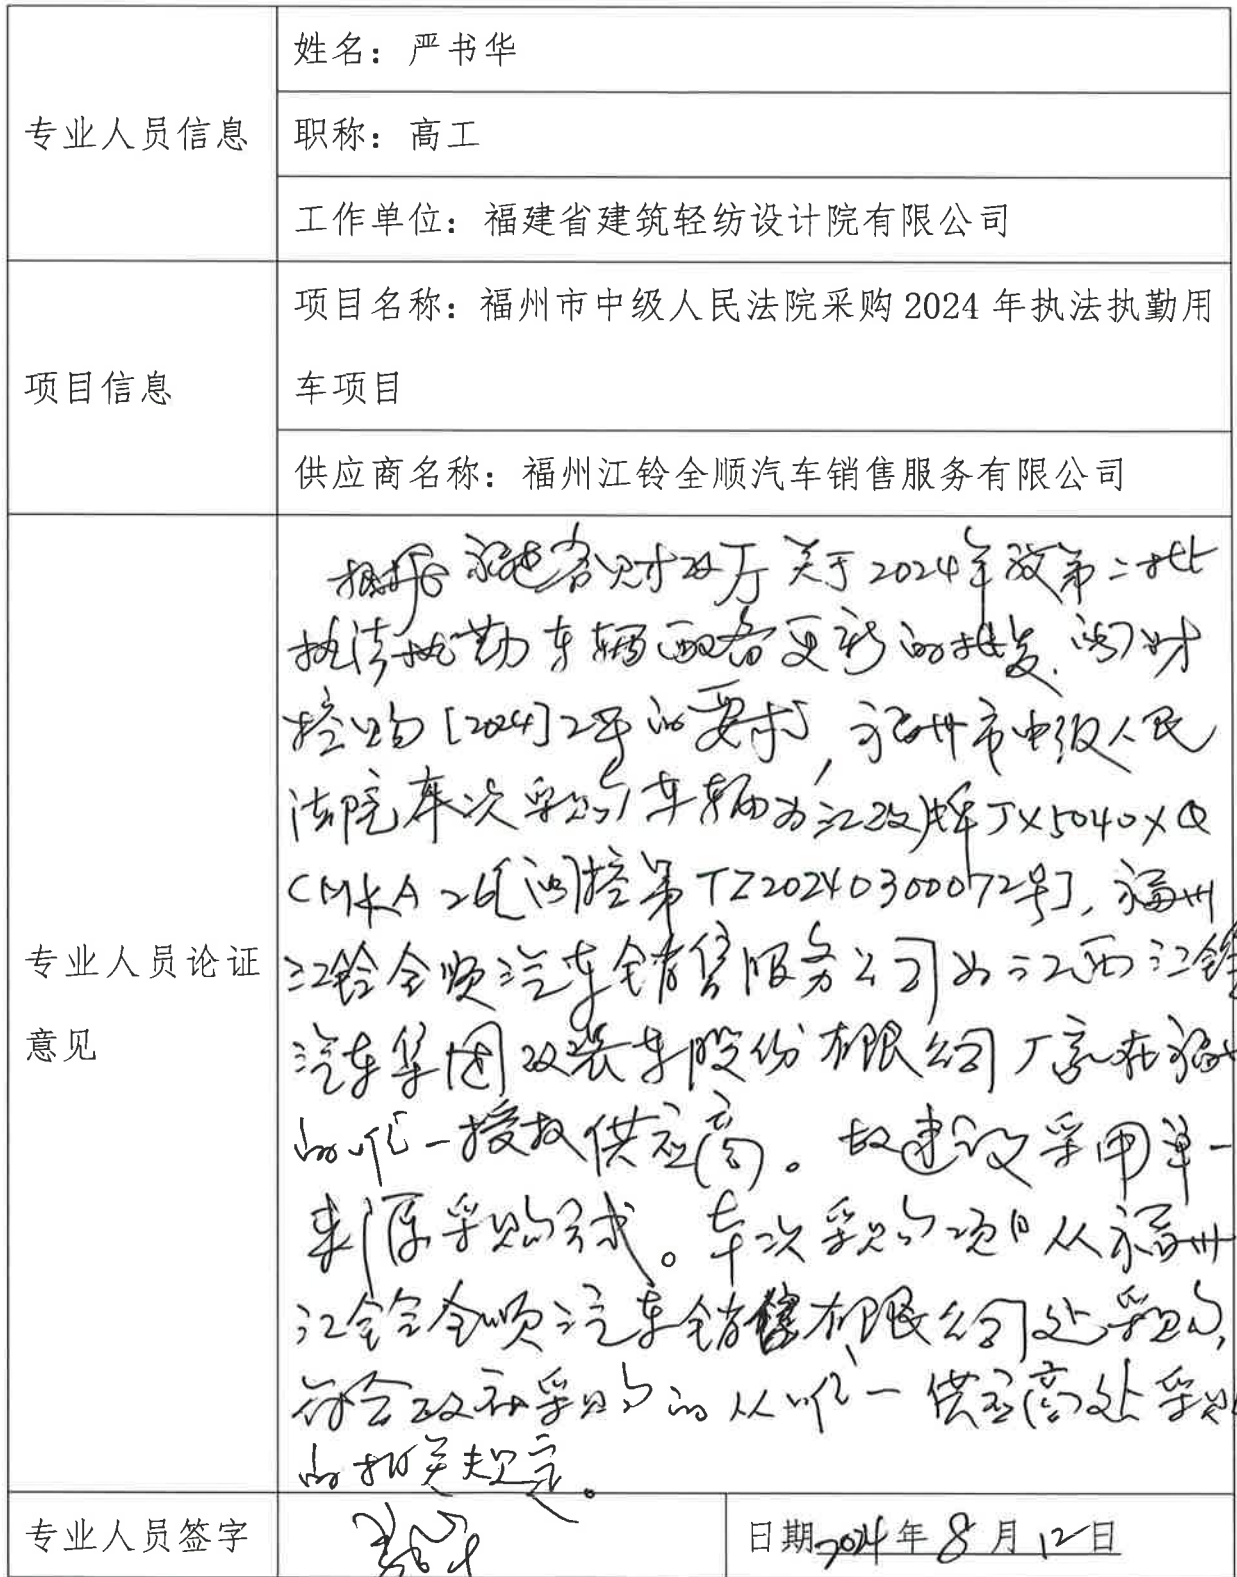 姓名：严书华
专业人员信息
职称：高工
工作单位：福建省建筑轻纺设计院有限公司
项目名称：福州市中级人民法院采购 2024 年执法执勤用
项目信息
车项目
供应商名称：福州江铃全顺汽车销售服务有限公司
根据福建省财政厅关于2024年度第二批
执法执勤车辆配备更新的批复，闽财
控购[2024]2号的要求，福州市中级人民
法院本次采购车辆为江改牌JX5040XQ
CMKA26[闽控第TZ20240300072号]，福州
专业人员论证
江铃全顺汽车销售服务公司为江西江铃
意见
汽车集团改装车股份有限公司厂家在福州
的唯一授权供应商。故建议采用单一
来源采购方式。本次采购项目从福州
江铃全顺汽车销售有限公司处采购，
符合政府采购的从唯一供应商处采购
的相关规定。
专业人员签字
严书华
日期2024年8月12日